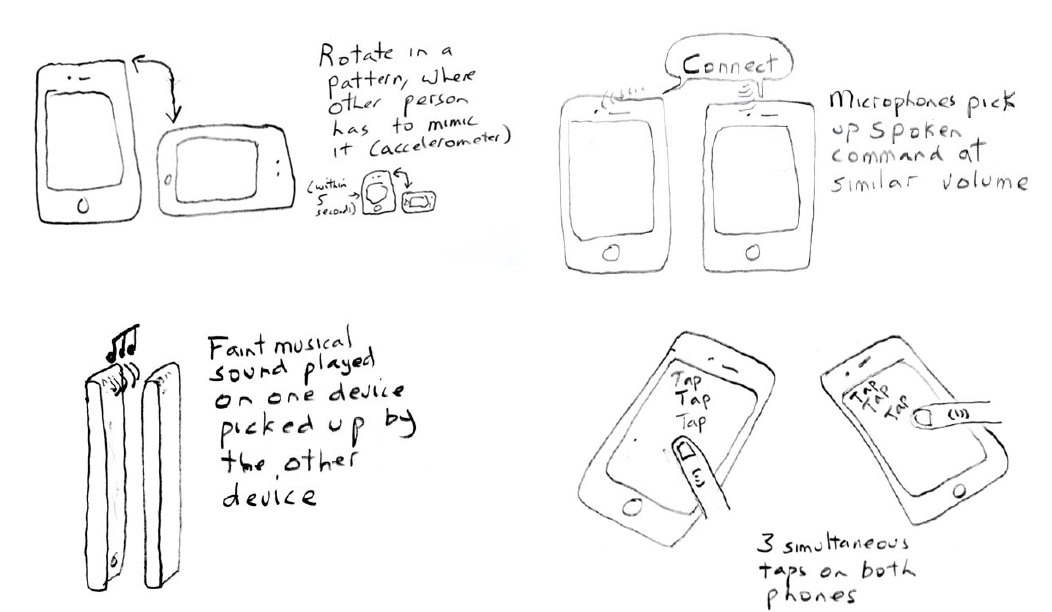 Rotate in a
pattern, where
other person
has to mimic
it (accelerometer)
(within
5
seconds)
Connect
Microphones pick
up spoken
command at
similar volume
Faint musical
sound played
on one device
picked up by
the other
device
Tap
Tap
Tap
Tap
Tap
Tap
3 simultaneous
taps on both
phones